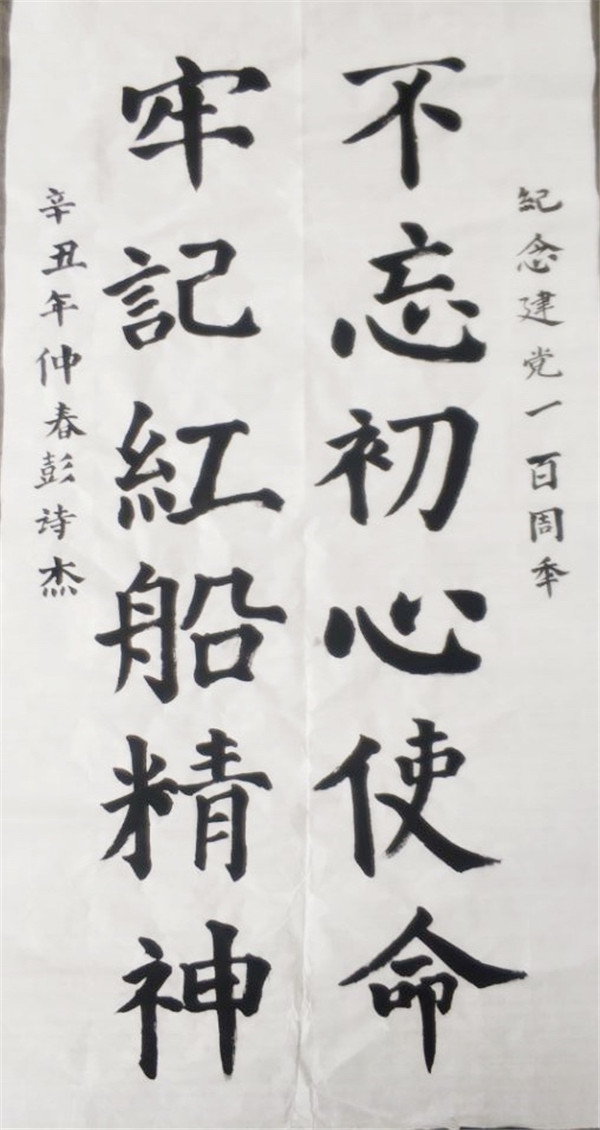 紀念建党一百周年
不忘初心使命
牢記紅船精神
辛丑年仲春彭诗杰